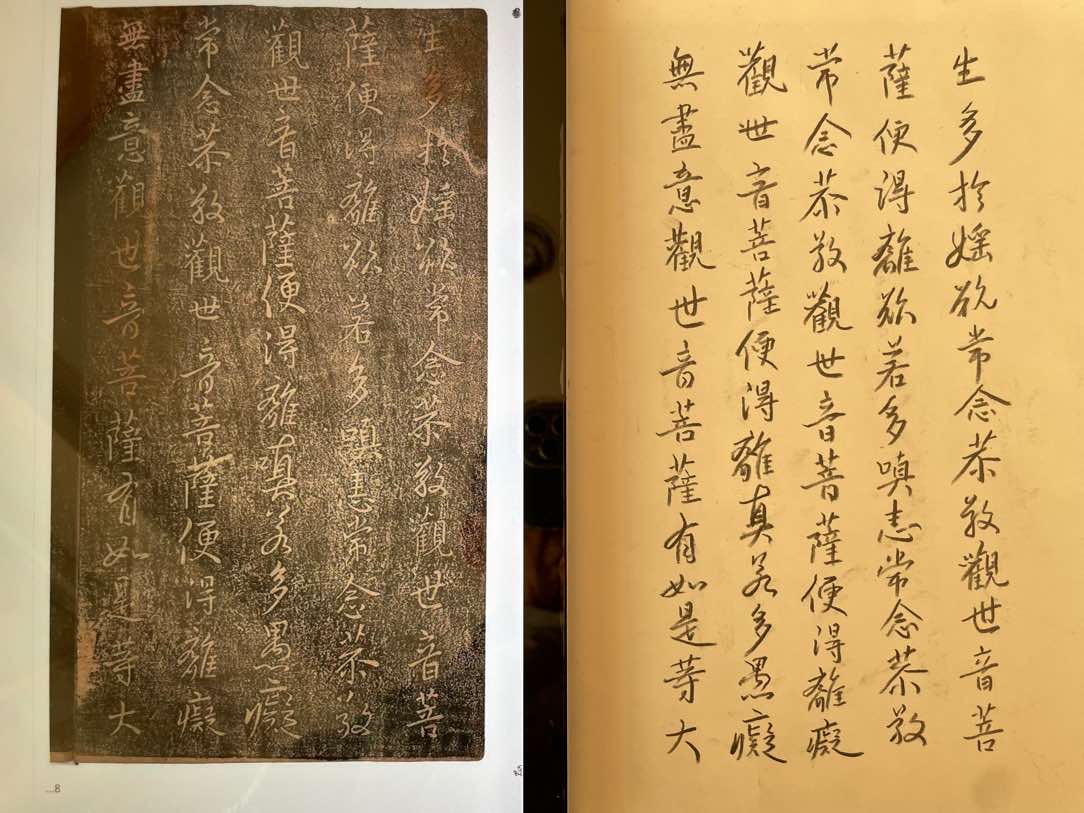 生多於婬欲常念恭敬觀世音菩
薩便得離欲若多瞋恚常念恭敬
觀世音菩薩便得離瞋若多愚癡
常念恭敬觀世音菩薩便得離癡
無盡意觀世音菩薩有如是等大
...8
生多於婬欲常念恭敬觀世音菩
薩便得離欲若多嗔恚常念恭敬
觀世音菩薩便得離真若多愚癡
常念恭敬觀世音菩薩便得離癡
無盡意觀世音菩薩有如是等大